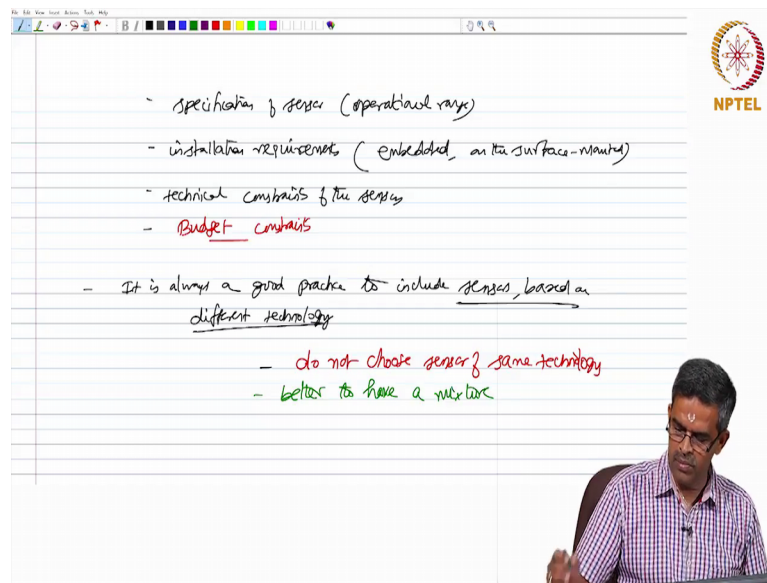 File Edit View Insert Actions Tools Help
B I
NPTEL
- specification of sensor (operational range)
- installation requirements (embedded, on the surface-mounted)
- technical constraints of the sensors
- Budget constraints
- It is always a good practice to include sensors, based on
different technology
- do not choose sensor of same technology
- better to have a mixture